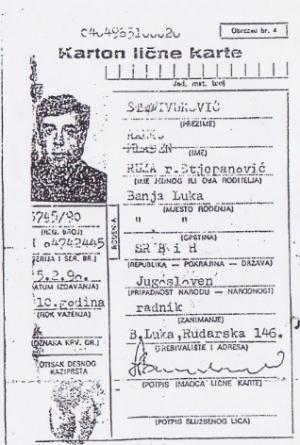 Obrazac br. 4
Karton lične karte
Jed. mat. broj
(PREZIME)
(IME)
RUŽA r.Stjepanović
(IME JEDNOG ILI OBA RODITELJA)
Banja Luka
(MJESTO ROĐENJA)
" "
5745/90
(REG. BROJ)
(OPŠTINA)
SR B i H
(SERIJA I SER. BR.)
(REPUBLIKA — POKRAJINA — DRŽAVA)
Jugosloven
(DATUM IZDAVANJA)
(PRIPADNOST NARODU — NARODNOSTI)
10.godina
radnik
(ROK VAŽENJA)
(ZANIMANJE)
B,Luka,Rudarska 146.
(OZNAKA KPV. GR.)
(PREBIVALIŠTE I ADRESA)
OTISAK DESNOG
KAŽIPRSTA
(POTPIS IMAOCA LIČNE KARTE)
(POTPIS SLUŽBENOG LICA)